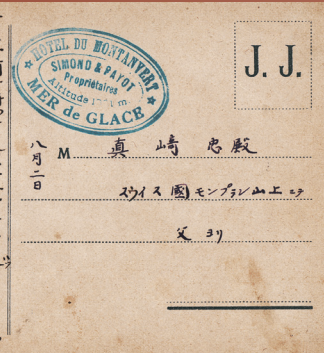 HOTEL DU MONTANVERT
SIMOND & PAYOT
Propriétaires
Altitude m
MER de GLACE
J. J.
M 真崎忠殿
八月二日
スウイス國モンブラン山上ニテ
父ヨリ